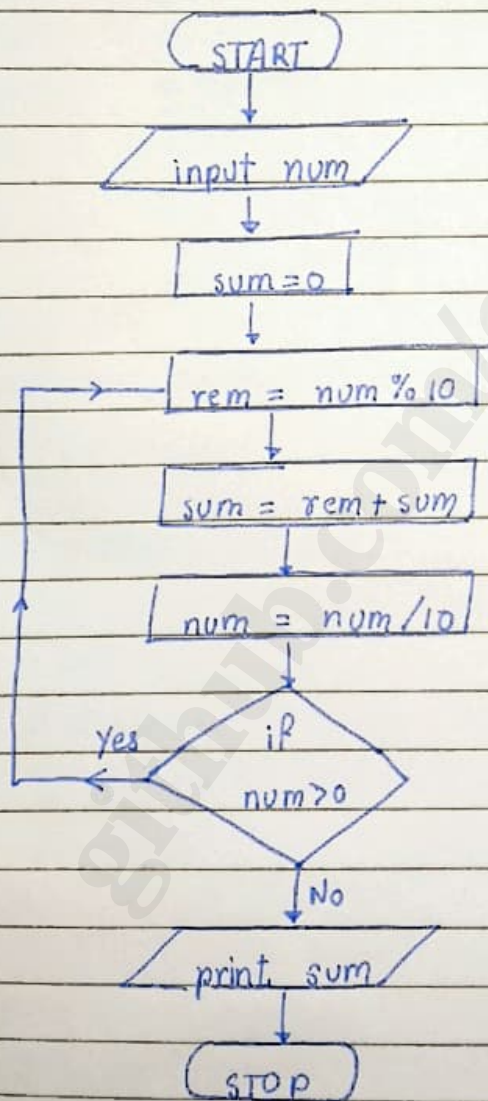 START
input num
sum=0
rem = num % 10
sum = rem + sum
num = num /10
if
num>0
Yes
No
print sum
STOP
github.com/